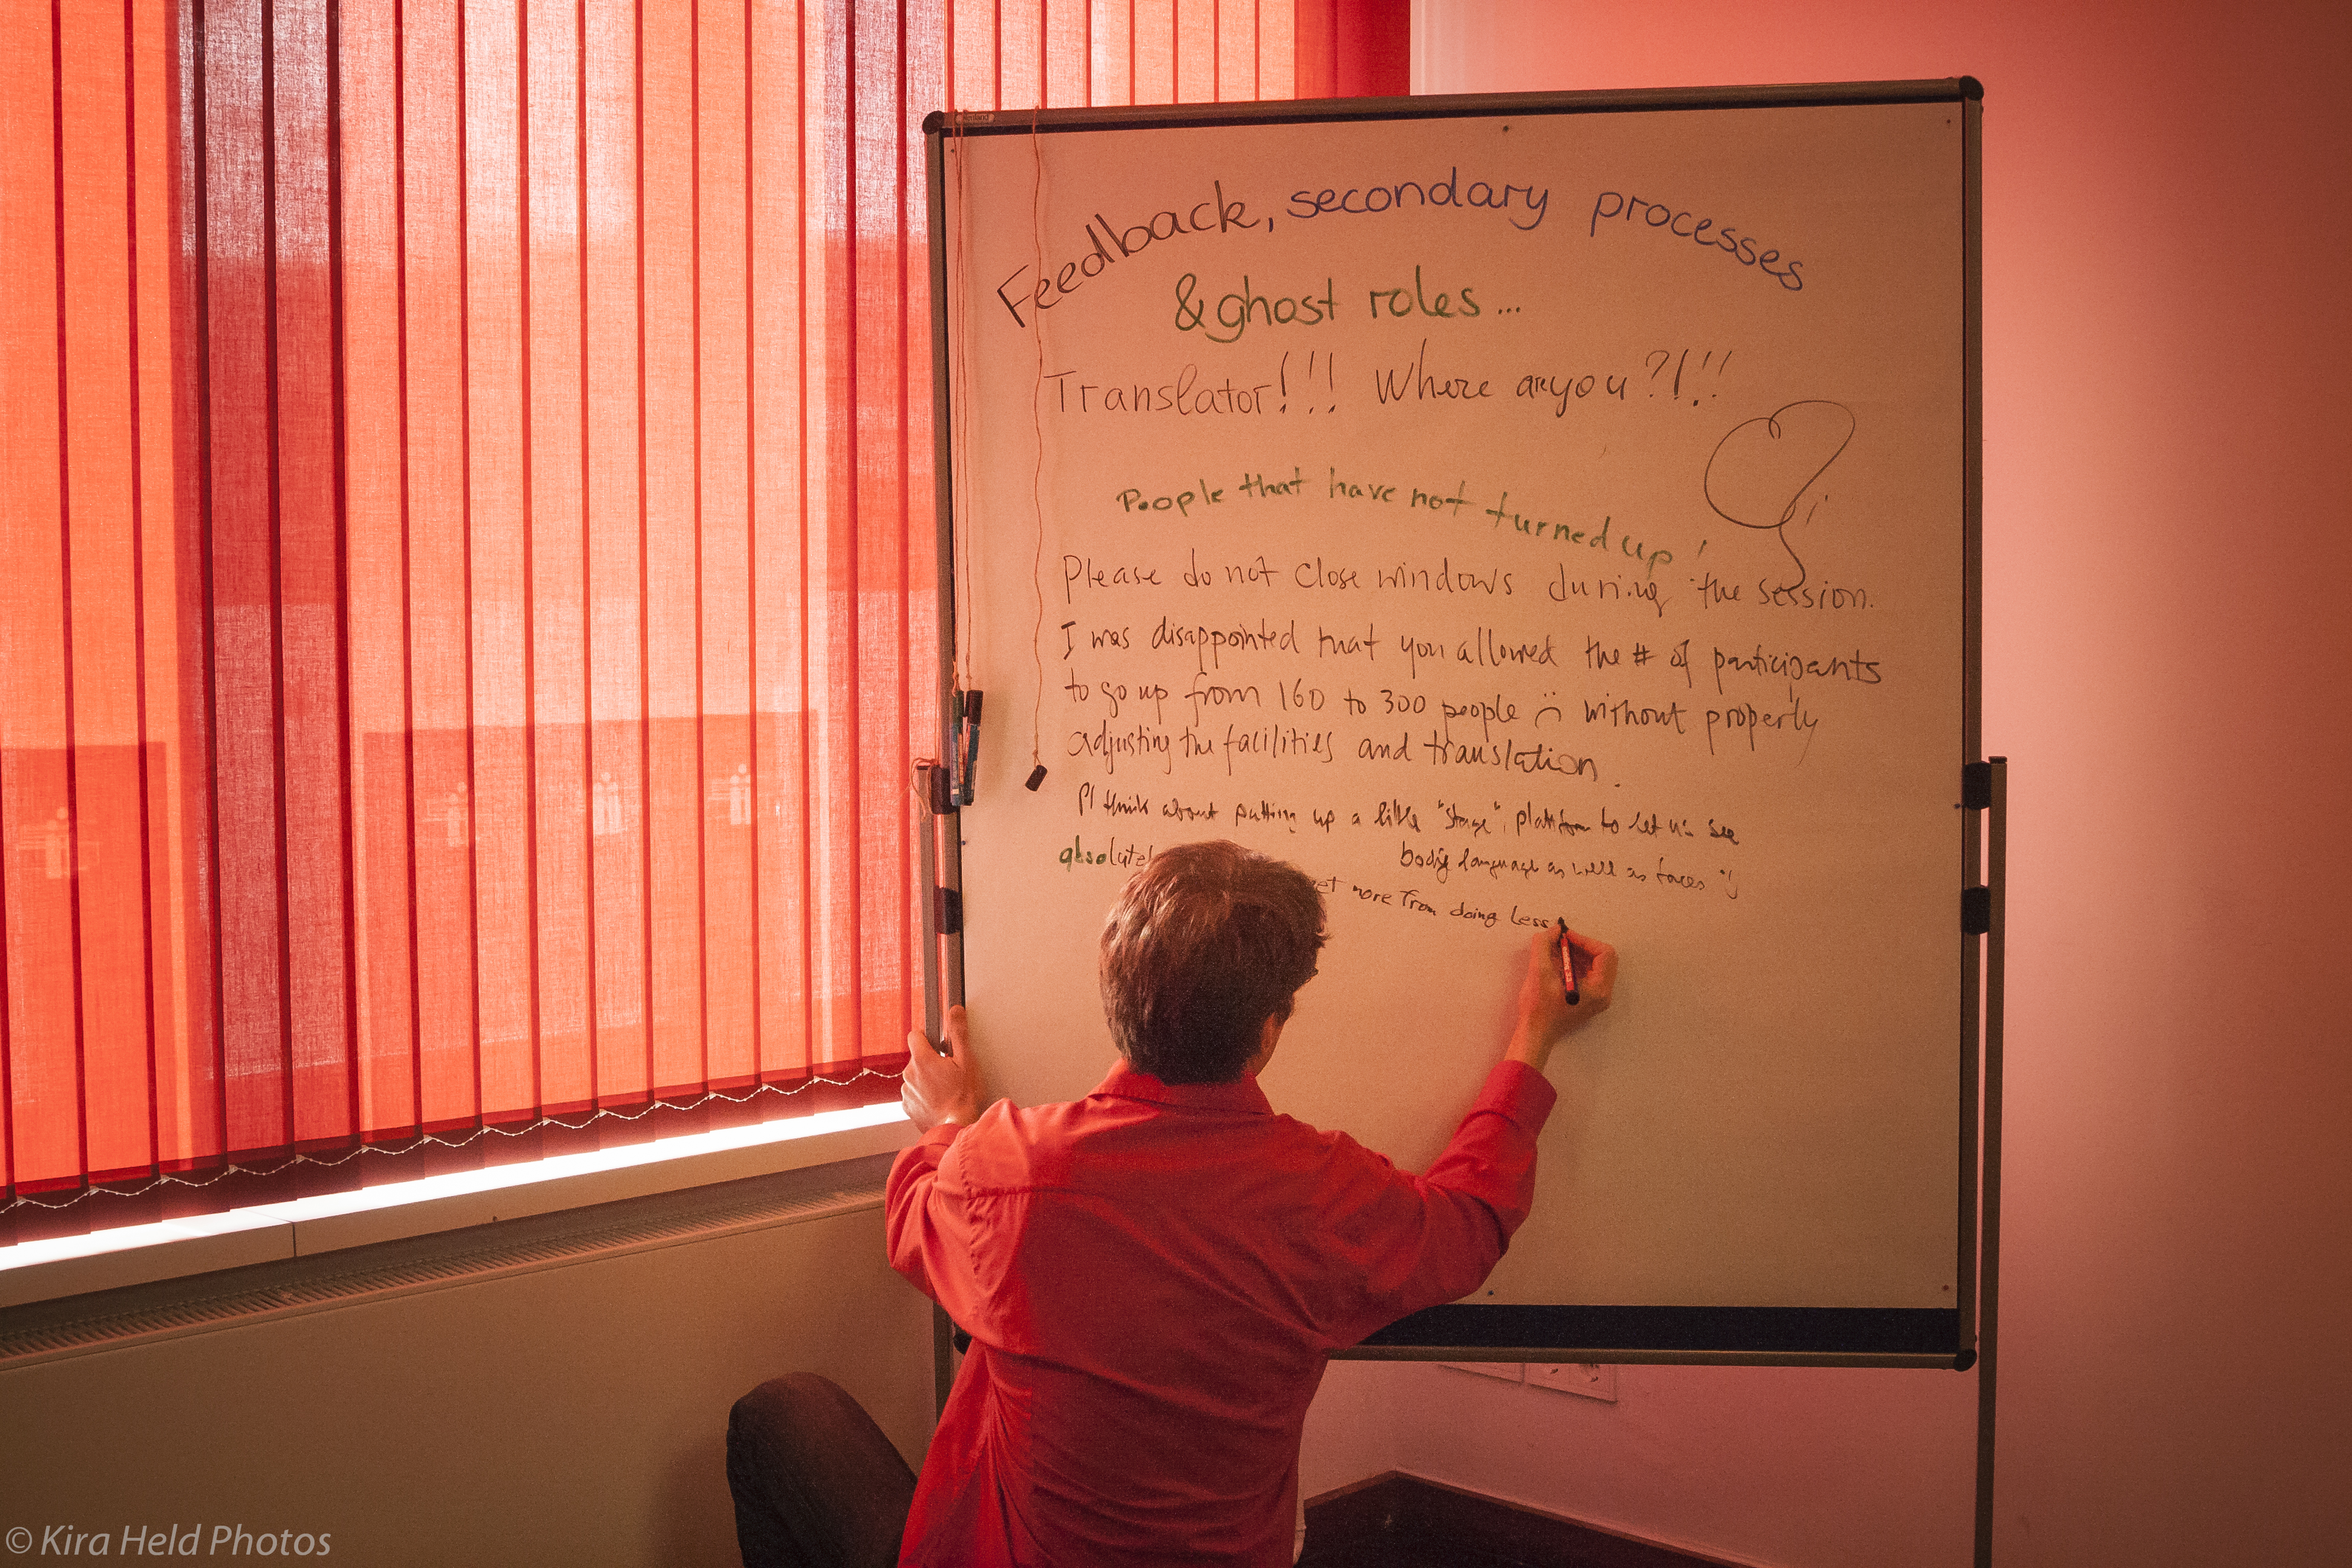 Feedback, secondary processes
& ghost roles...
Translator!!! Where are you?!!!
People that have not turned up!
Please do not close windows during the session.
I was disappointed that you allowed the # of participants
to go up from 160 to 300 people :( without properly
adjusting the facilities and translation.
Pl think about putting up a little "stage", platform to let us see
body language as well as faces :)
more from doing less
© Kira Held Photos